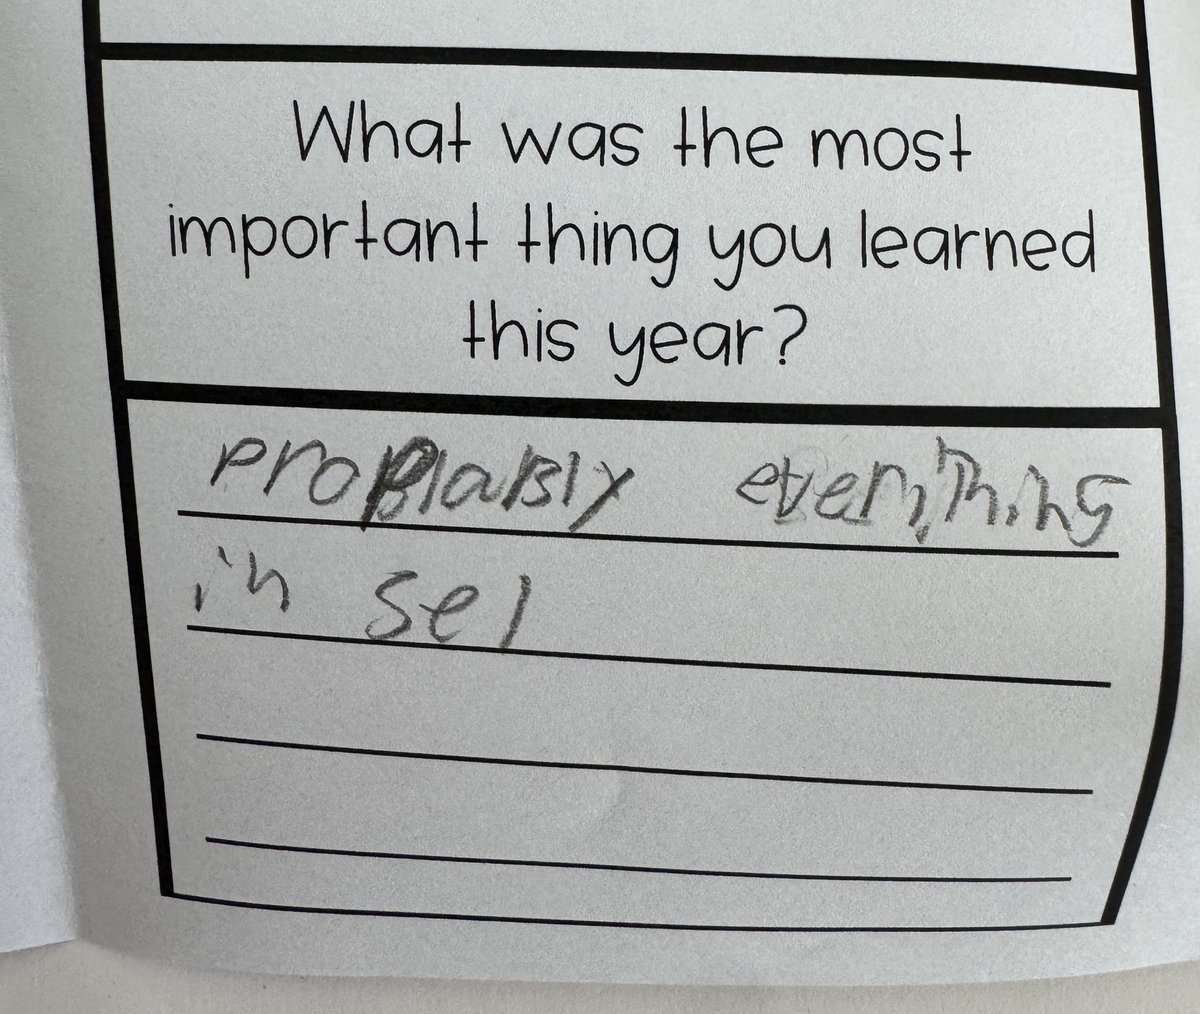 What was the most
important thing you learned
this year?
problably everything
in sel